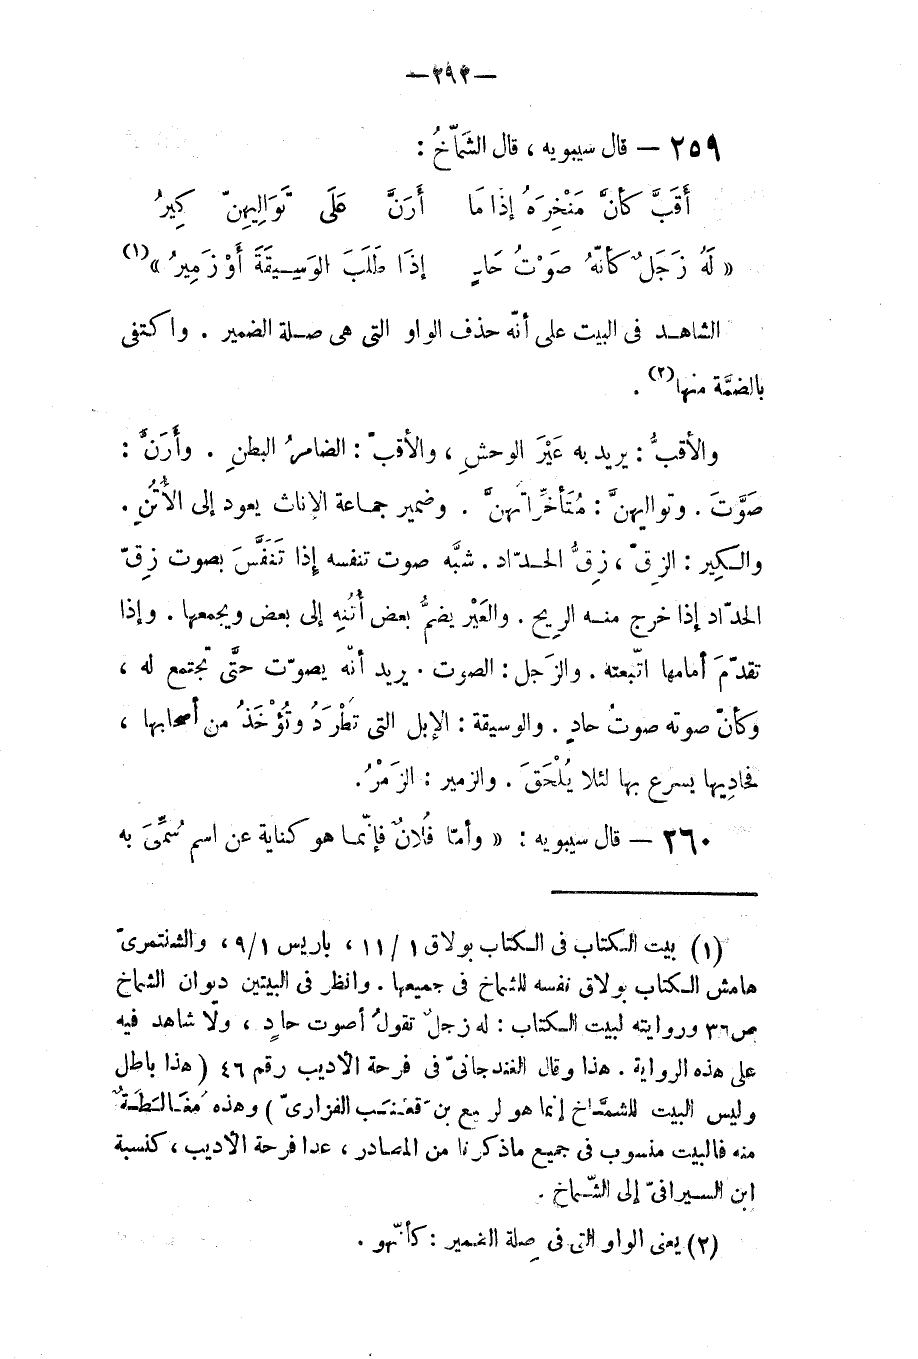 —٢٩٣—
٢٥٩ — قال سيبويه ، قال الشَمَّاخُ :
أَقَبَّ كأنَّ مَنْخِرَهُ إذَا مَا أَرَنَّ عَلَى تَوَالِيهِنّ كِيرُ
« لَهُ زَجَلٌ كأنّهُ صَوْتُ حَادٍ إذَا طَلَبَ الوَسِيقَةَ أَوْ زَمِيرُ »(١)
الشاهد فى البيت على أنّه حذف الواو التى هى صلة الضمير . واكتفى
بالضمَّة منها(٢) .
والأقبُّ : يريد به عَيْرَ الوحشِ ، والأقبّ : الضامرُ البطنِ . وأَرَنَّ :
صَوَّتَ . وتواليهنَّ : مُتَأخِّراتهنَّ . وضمير جماعة الإناث يعود إلى الأُتُنِ .
والكِير : الزِقّ ، زِقُّ الحدّاد . شبَّه صوت تنفسه إذا تَنَفَّسَ بصوت زِقّ
الحدّاد إذا خرج منه الريح . والعَيْر يضمُّ بعض أُتُنِهِ إلى بعض ويجمعها . وإذا
تقدّمَ أمامها اتّبعته . والزَجل : الصوت . يريد أنّه يصوّت حتَّى تجتمع له ،
وكأنّ صوته صوتُ حادٍ . والوسيقة : الإبل التى تطْرَدُ وتُؤْخَذُ من أصحابها ،
فحادِيها يسرع بها لئلا يُلْحَقَ . والزمير : الزَمْرُ .
٢٦٠ — قال سيبويه : « وأمّا فُلانٌ فإنّما هو كناية عن اسم سُمِّىَ به
(١) بيت الكتاب فى الكتاب بولاق ١ / ١١ ، باريس ١ / ٩ ، والشنتمرىّ
هامش الكتاب بولاق نفسه للشماخ فى جميعها . وانظر فى البيتين ديوان الشماخ
ص٣٦ وروايته لبيت الكتاب : له زجلٌ تقولُ أصوت حادٍ ، ولا شاهد فيه
على هذه الرواية . هذا وقال الغندجانىّ فى فرحة الأديب رقم ٤٦ ( هذا باطل
وليس البيت للشمَّاخ إنما هو لربيع بن قعنب الفزارىّ ) وهذه مغالطةٌ
منه فالبيت منسوب فى جميع ماذكرنا من المصادر ، عدا فرحة الأديب ، كنسبة
ابن السيرافىّ إلى الشّماخ .
(٢) يعنى الواو التى فى صلة الضمير : كأنّهو .